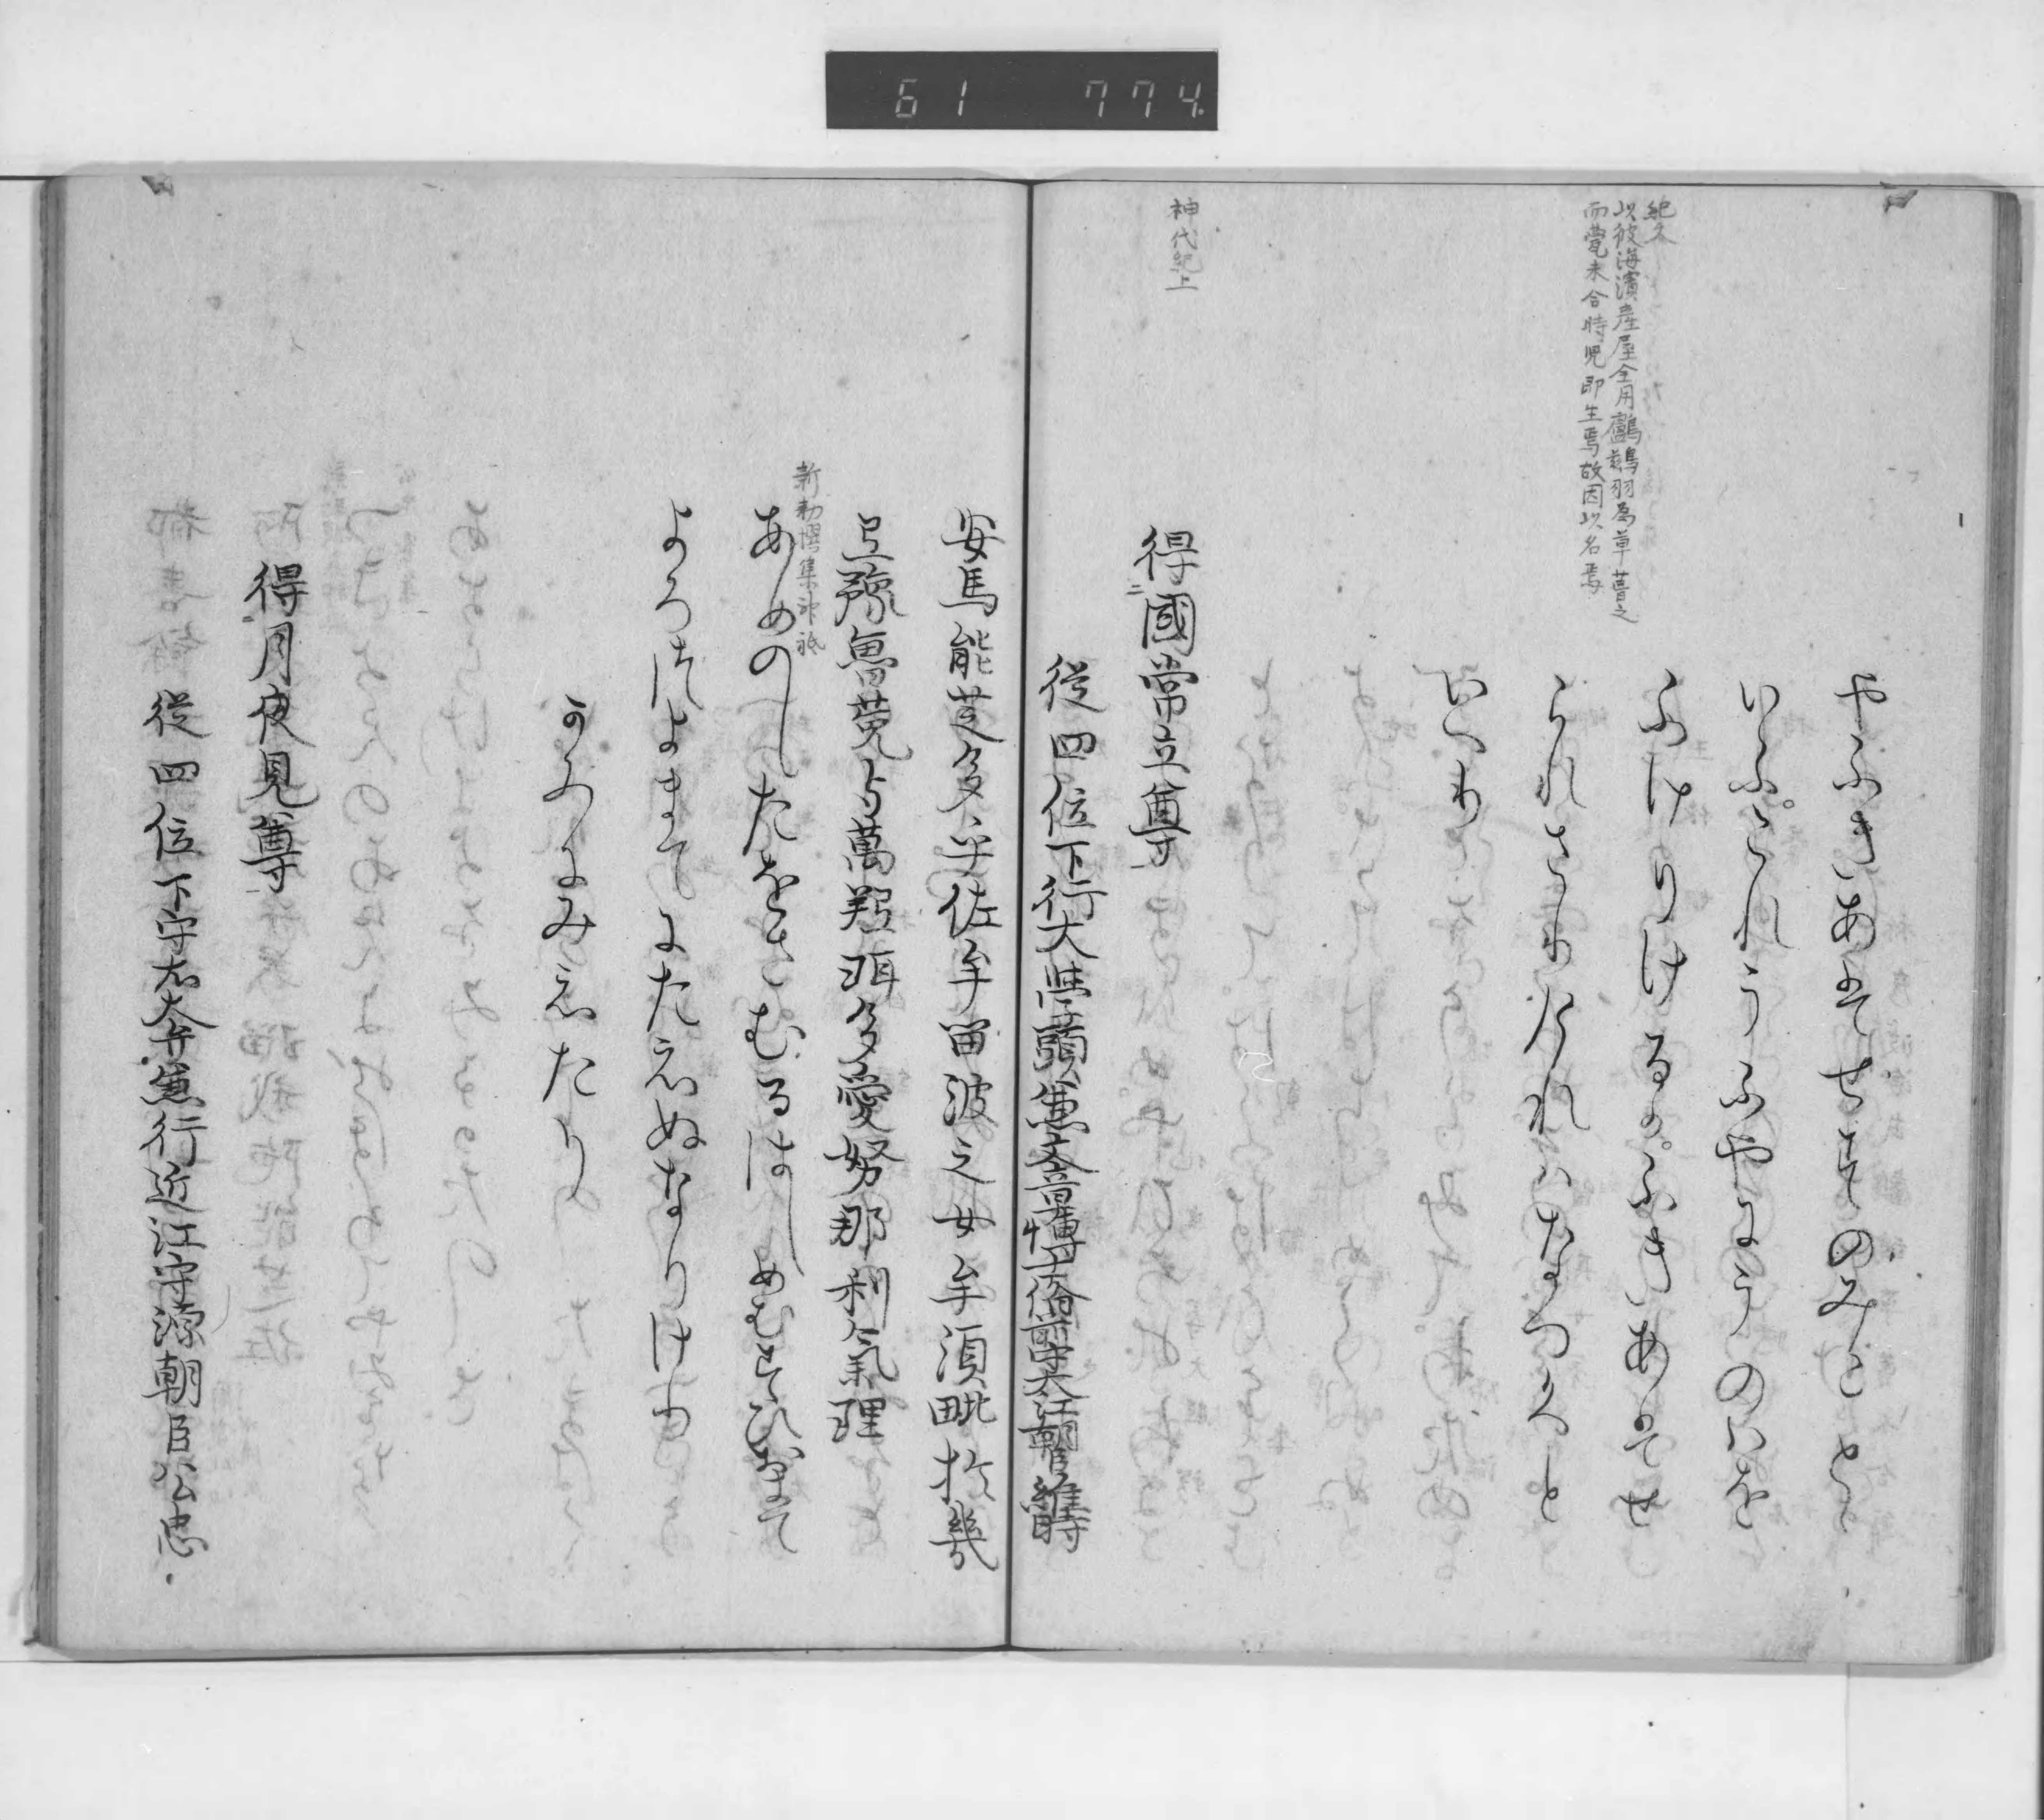 61 774
紀久
以彼海濱産屋全用鸕鷀羽為草葺之
而甍未合時児即生焉故因以名焉
やふきあはせすのみことゝ
いふこれうふやにうのはを
ふけりけるかふきあはせ
られさりけれはなつくと
いへり
神代紀上
得國常立尊
従四位下行大學頭兼文章博士備前守大江朝臣維時
安馬能芝多乎佐牟留波之女牟湏毗於幾
弖豫魯莬与萬弖珥多愛努那利氣理
新勅撰集神祇
あめのしたをさむるはしめむすひおきて
よろつよまてにたえぬなりけり
かみよみえたり
得月夜見尊
従四位下守右大弁兼行近江守源朝臣公忠